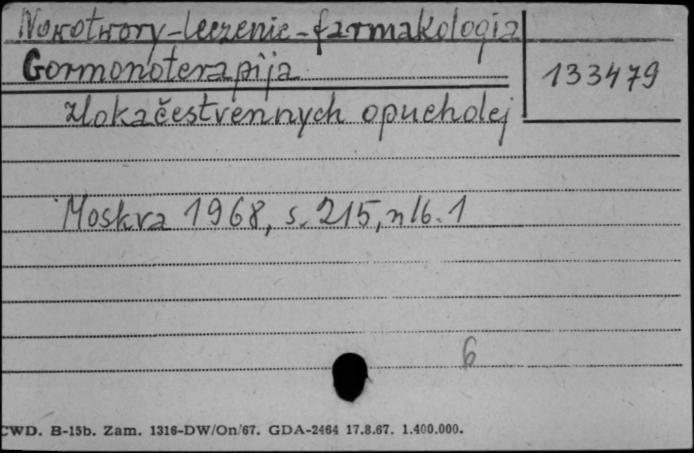 Nowotwory-leczenie-farmakologia
Gormonoterapija
133479
zlokačestvennych opucholej
Moskva 1968, s. 215, nlb. 1
6
CWD. B-15b. Zam. 1316-DW/On/67. GDA-2464 17.8.67. 1.400.000.